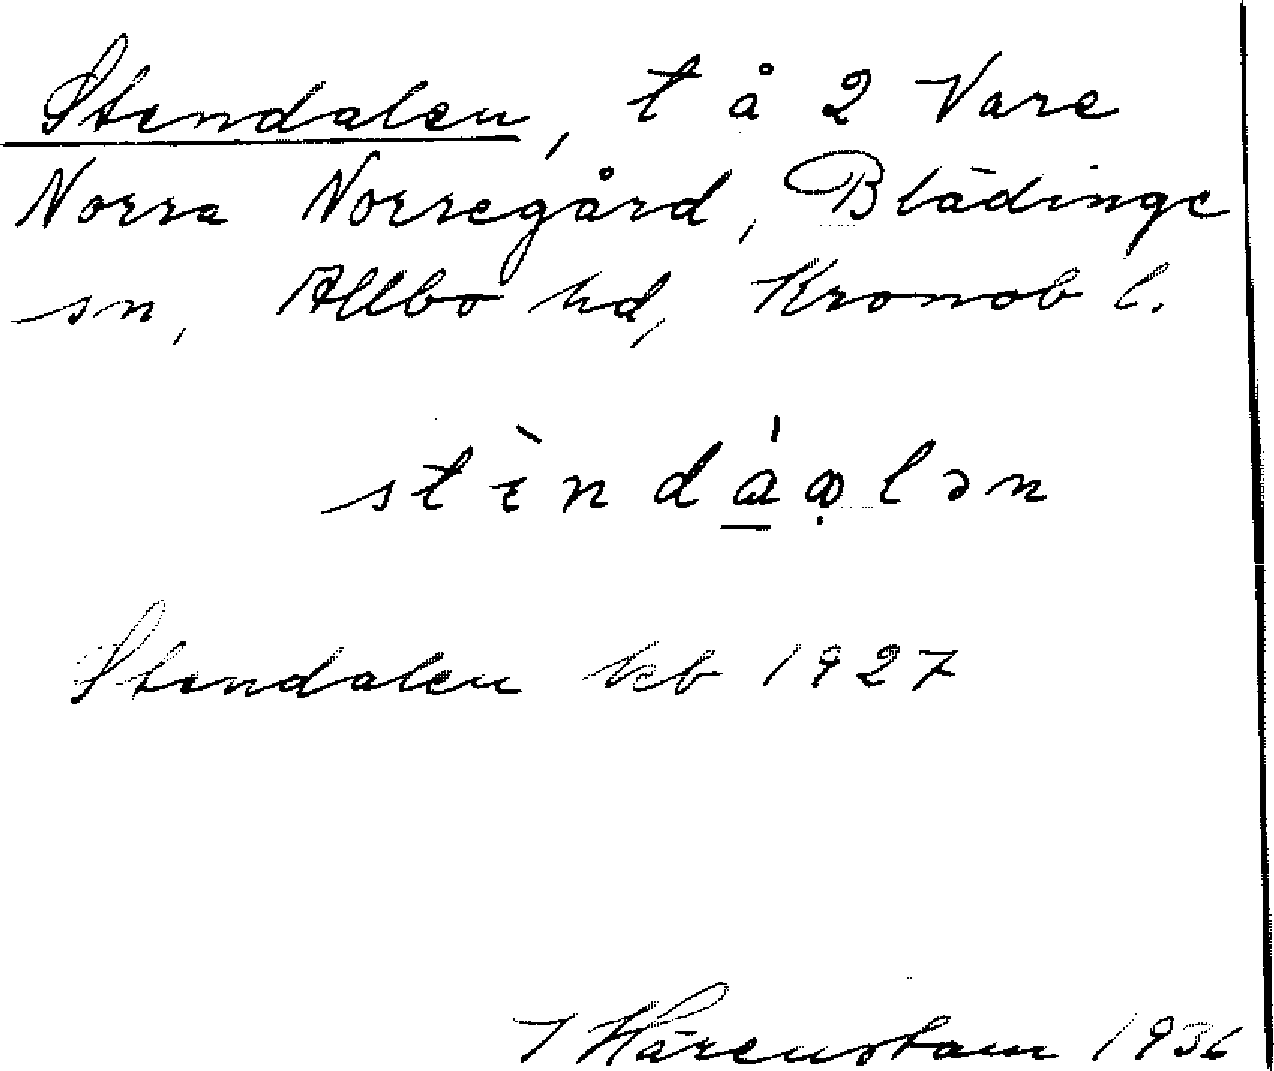 Stendalen, t å 2 Vare
Norra Norregård, Blädinge
sn, Allbo hd, Kronob l.
stὲndáɷ̣lən
Stendalen kb 1927
T Härenstam 1936